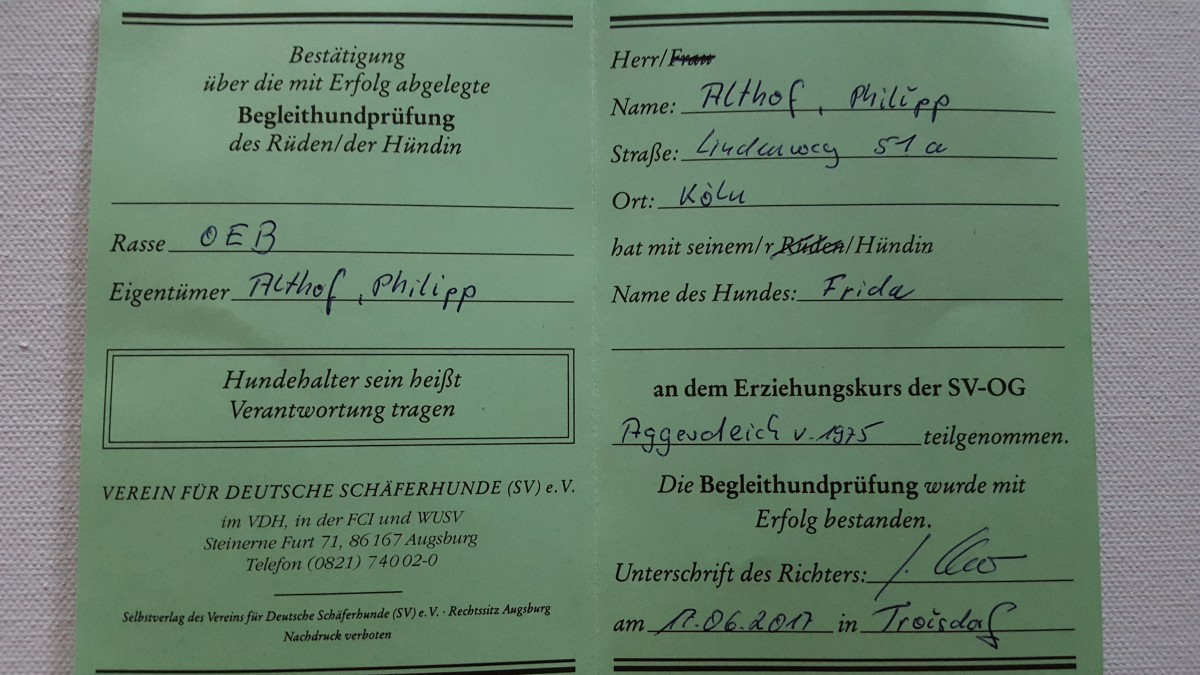 Bestätigung
über die mit Erfolg abgelegte
Begleithundprüfung
des Rüden/der Hündin
Rasse OEB
Eigentümer Althof, Philipp
Hundehalter sein heißt
Verantwortung tragen
VEREIN FÜR DEUTSCHE SCHÄFERHUNDE (SV) e.V.
im VDH, in der FCI und WUSV
Steinerne Furt 71, 86167 Augsburg
Telefon (0821) 74002-0
Selbstverlag des Vereins für Deutsche Schäferhunde (SV) e.V. · Rechtssitz Augsburg
Nachdruck verboten
Herr/Frau
Name: Althof, Philipp
Straße: Lindenweg 51a
Ort: Köln
hat mit seinem/r Rüden/Hündin
Name des Hundes: Frida
an dem Erziehungskurs der SV-OG
Aggerdeich v. 1975 teilgenommen.
Die Begleithundprüfung wurde mit
Erfolg bestanden.
Unterschrift des Richters:
am 17.06.2017 in Troisdorf